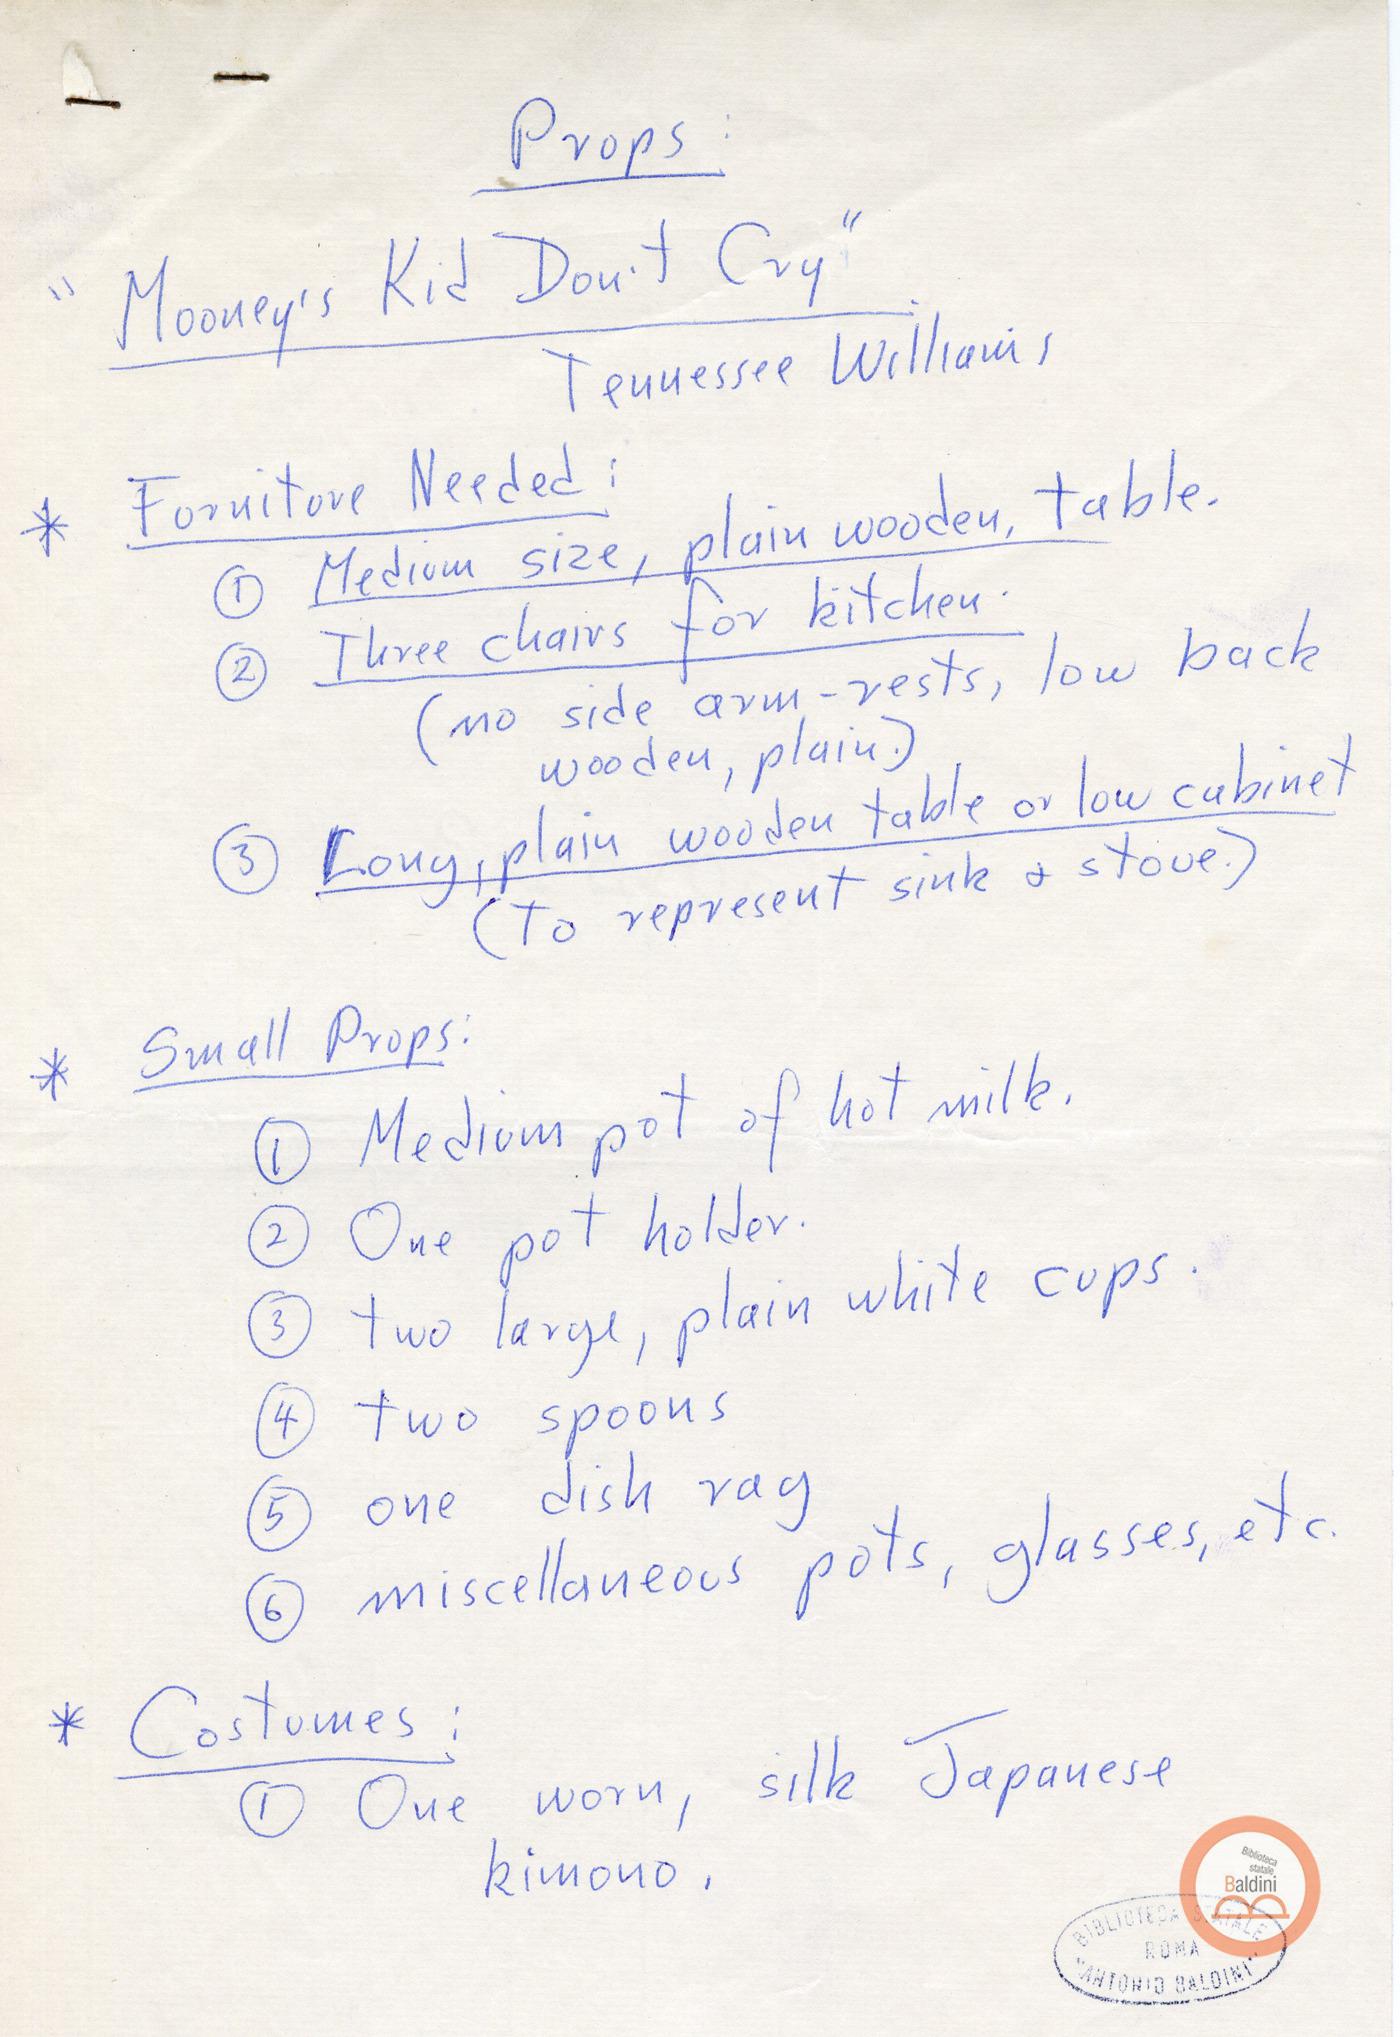 Props:
"Mooney's Kid Don't Cry"
Tennessee Williams
* Forniture Needed:
① Medium size, plain wooden, table.
② Three chairs for kitchen.
(no side arm-rests, low back
wooden, plain.)
③ Long, plain wooden table or low cabinet
(To represent sink & stove.)
* Small Props:
① Medium pot of hot milk.
② One pot holder.
③ two large, plain white cups.
④ two spoons
⑤ one dish rag
⑥ miscellaneous pots, glasses, etc.
* Costumes:
① One worn, silk Japanese
kimono.
Biblioteca
statale
Baldini
BIBLIOTECA STATALE
ROMA
"ANTONIO BALDINI"